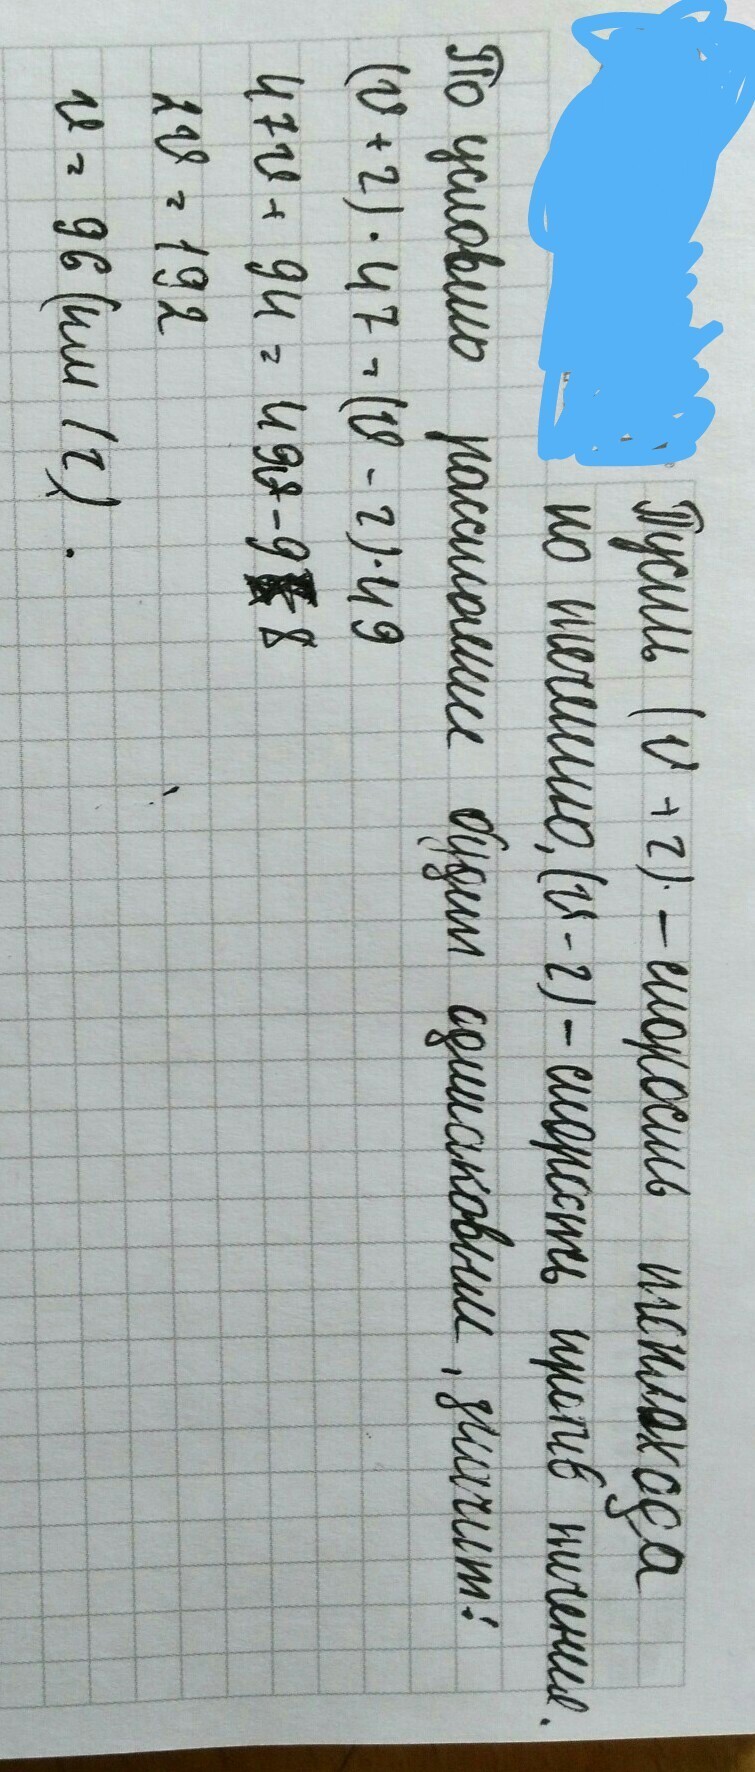 Пусть (v + 2) - скорость теплохода
по течению, (v - 2) - скорость против течения.
По условию расстояние будет одинаковым, значит:
(v + 2) · 47 = (v - 2) · 49
47v + 94 = 49v - 98
2v = 192
v = 96 (км/ч).